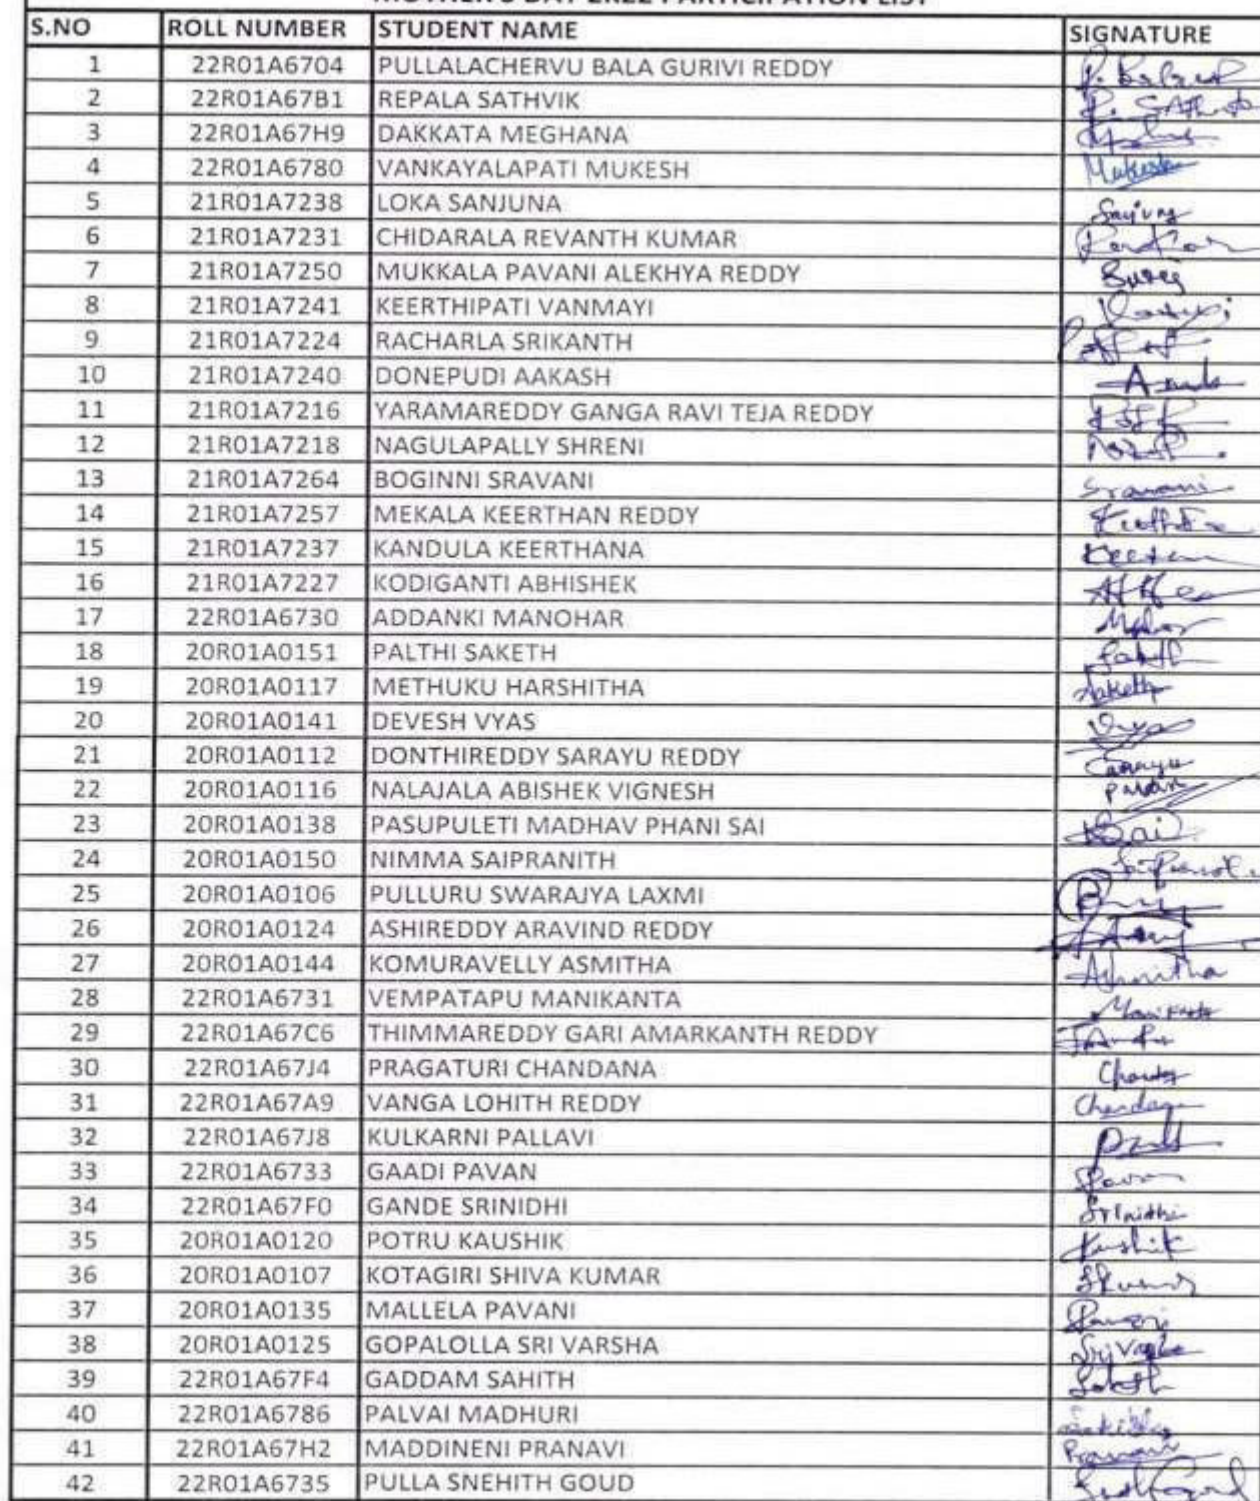 MOTHER'S DAY 2K22 PARTICIPATION LIST
S.NO ROLL NUMBER STUDENT NAME SIGNATURE
1 22R01A6704 PULLALACHERVU BALA GURIVI REDDY
2 22R01A67B1 REPALA SATHVIK
3 22R01A67H9 DAKKATA MEGHANA
4 22R01A6780 VANKAYALAPATI MUKESH Mukesh
5 21R01A7238 LOKA SANJUNA
6 21R01A7231 CHIDARALA REVANTH KUMAR
7 21R01A7250 MUKKALA PAVANI ALEKHYA REDDY
8 21R01A7241 KEERTHIPATI VANMAYI
9 21R01A7224 RACHARLA SRIKANTH
10 21R01A7240 DONEPUDI AAKASH
11 21R01A7216 YARAMAREDDY GANGA RAVI TEJA REDDY
12 21R01A7218 NAGULAPALLY SHRENI
13 21R01A7264 BOGINNI SRAVANI Sravani
14 21R01A7257 MEKALA KEERTHAN REDDY
15 21R01A7237 KANDULA KEERTHANA
16 21R01A7227 KODIGANTI ABHISHEK
17 22R01A6730 ADDANKI MANOHAR
18 20R01A0151 PALTHI SAKETH
19 20R01A0117 METHUKU HARSHITHA Saketh
20 20R01A0141 DEVESH VYAS
21 20R01A0112 DONTHIREDDY SARAYU REDDY Sarayu
22 20R01A0116 NALAJALA ABISHEK VIGNESH
23 20R01A0138 PASUPULETI MADHAV PHANI SAI
24 20R01A0150 NIMMA SAIPRANITH
25 20R01A0106 PULLURU SWARAJYA LAXMI
26 20R01A0124 ASHIREDDY ARAVIND REDDY
27 20R01A0144 KOMURAVELLY ASMITHA Ashmitha
28 22R01A6731 VEMPATAPU MANIKANTA
29 22R01A67C6 THIMMAREDDY GARI AMARKANTH REDDY
30 22R01A67J4 PRAGATURI CHANDANA
31 22R01A67A9 VANGA LOHITH REDDY
32 22R01A67J8 KULKARNI PALLAVI
33 22R01A6733 GAADI PAVAN
34 22R01A67F0 GANDE SRINIDHI
35 20R01A0120 POTRU KAUSHIK Kushik
36 20R01A0107 KOTAGIRI SHIVA KUMAR
37 20R01A0135 MALLELA PAVANI
38 20R01A0125 GOPALOLLA SRI VARSHA
39 22R01A67F4 GADDAM SAHITH
40 22R01A6786 PALVAI MADHURI
41 22R01A67H2 MADDINENI PRANAVI
42 22R01A6735 PULLA SNEHITH GOUD